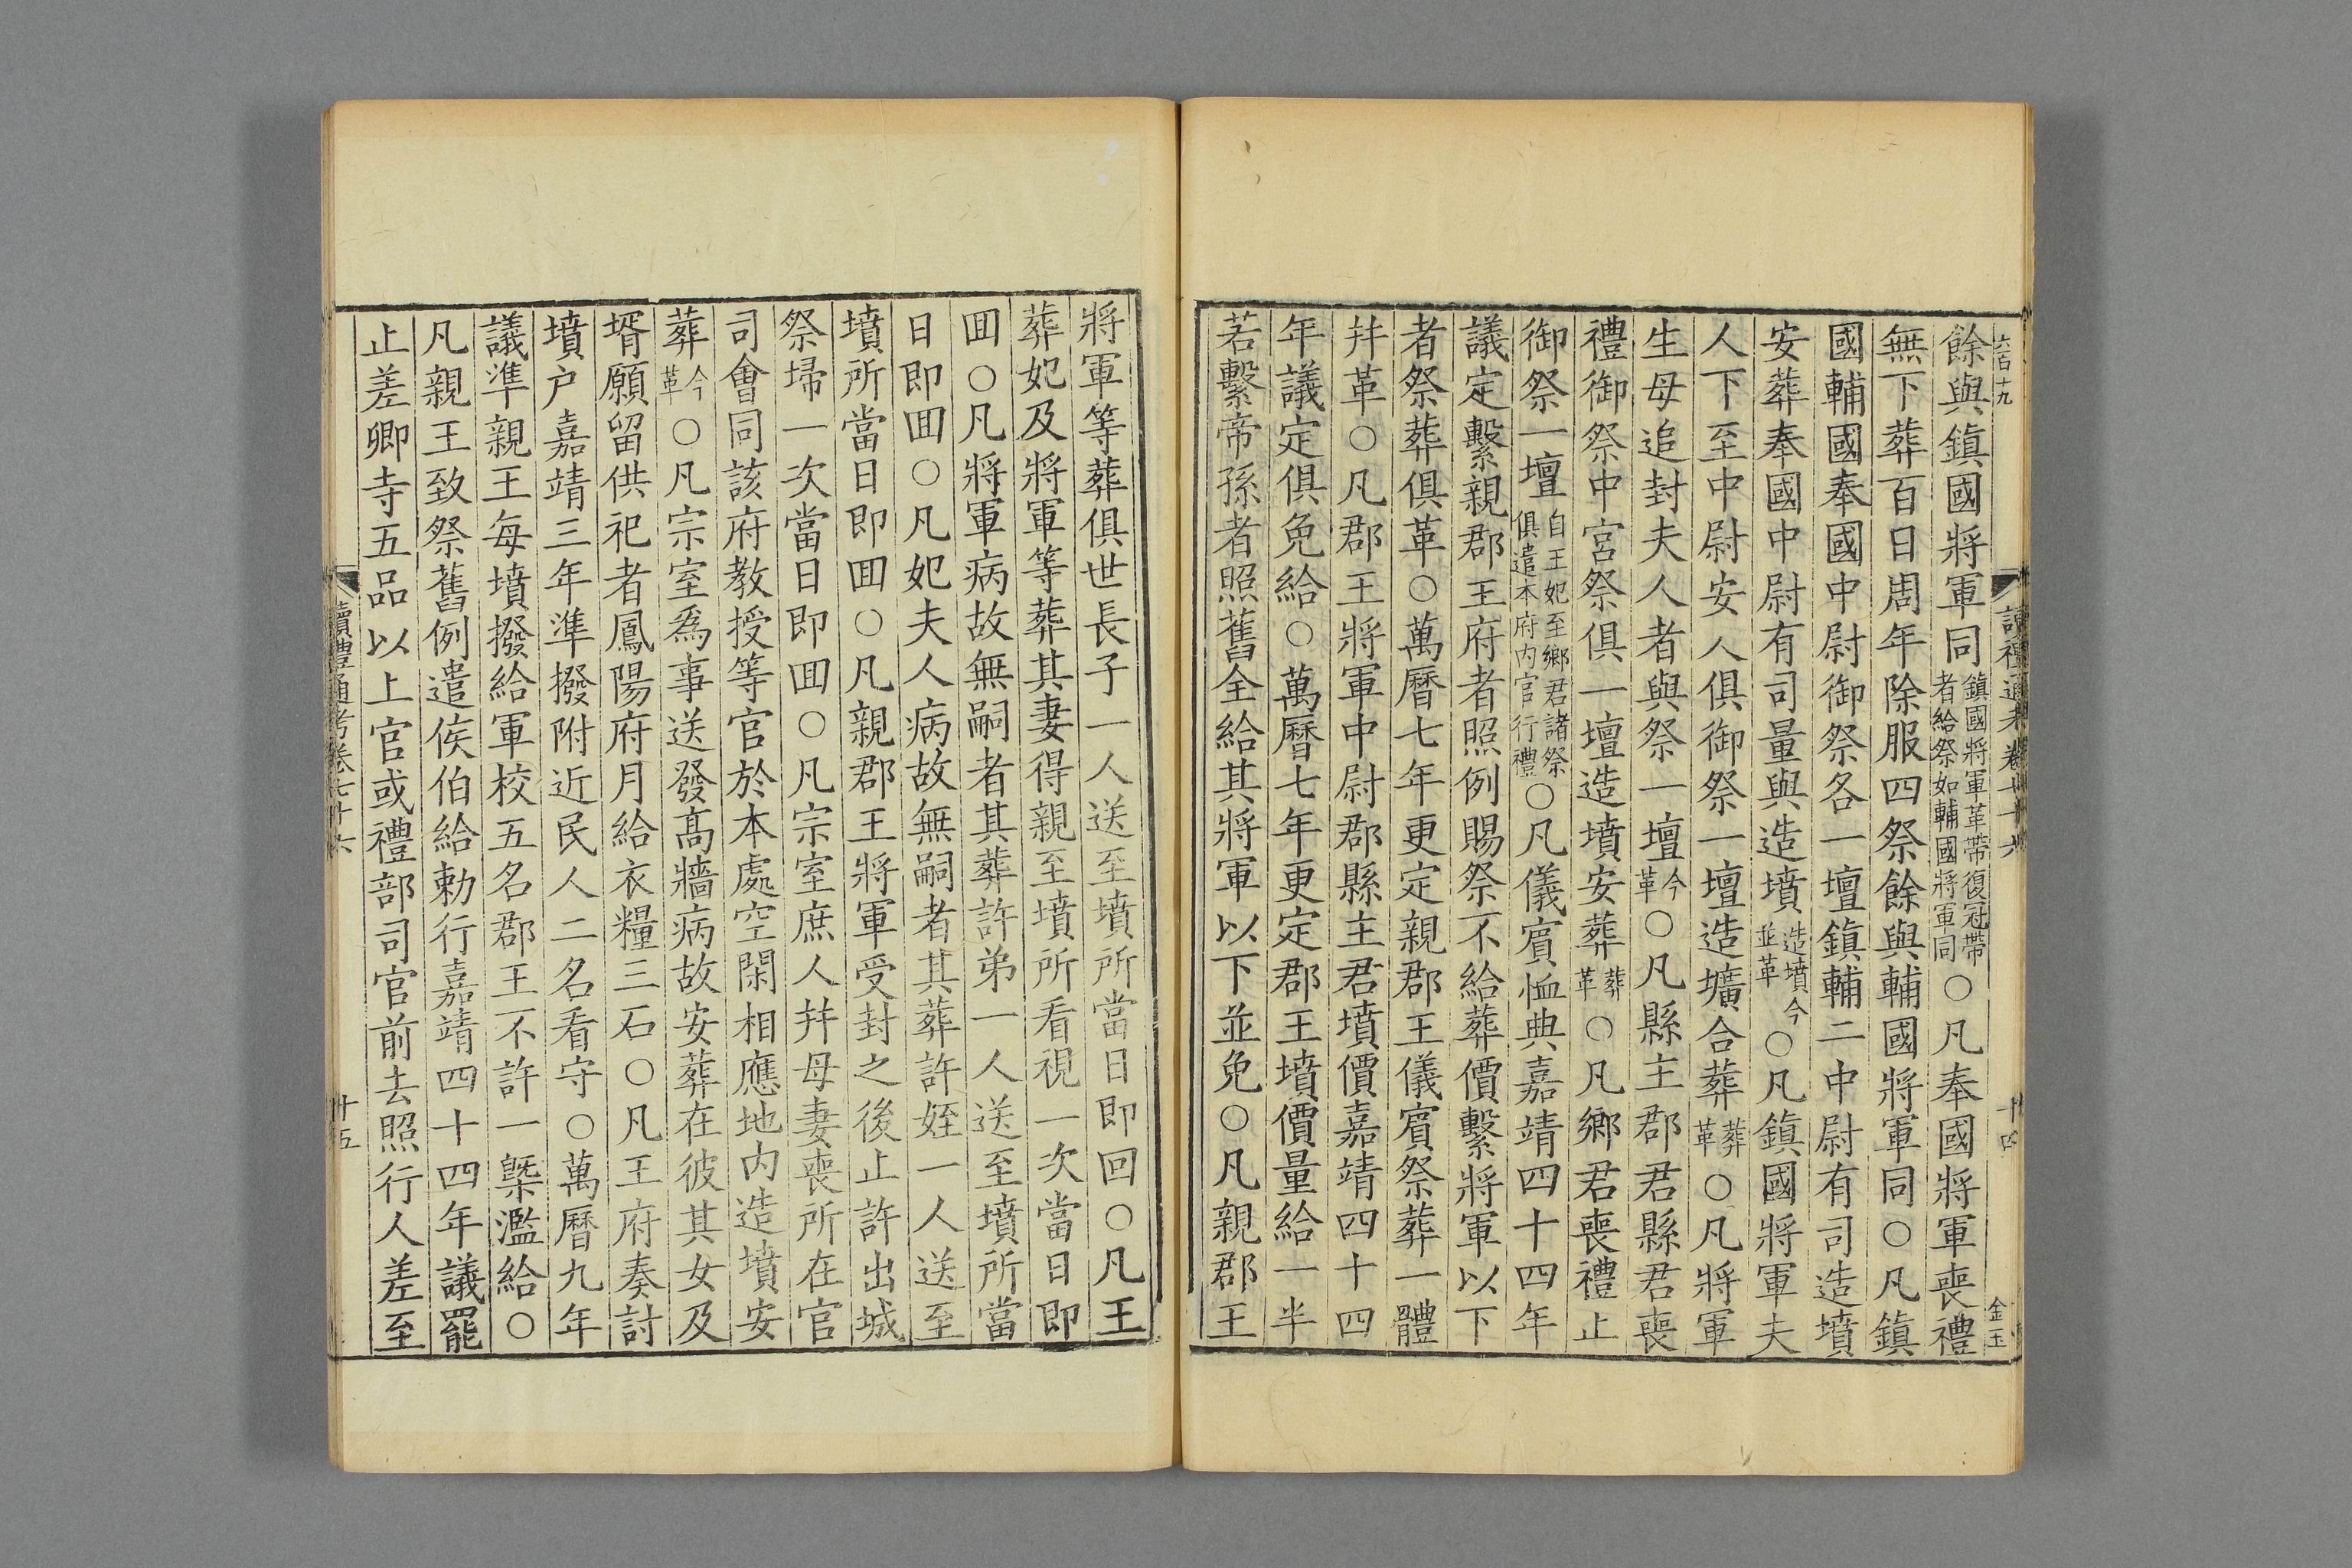 六百十九
讀禮通考卷七十六
十四
金玉
餘與鎮國將軍同鎮國將軍革帶復冠帶者給祭如輔國將軍同○凡奉國將軍喪禮
無下葬百日周年除服四祭餘與輔國將軍同○凡鎮
國輔國奉國中尉御祭各一壇鎮輔二中尉有司造墳
安葬奉國中尉有司量與造墳造墳今並革○凡鎮國將軍夫
人下至中尉安人俱御祭一壇造壙合葬葬革○凡將軍
生母追封夫人者與祭一壇今革○凡縣主郡君縣君喪
禮御祭中宮祭俱一壇造墳安葬葬革○凡鄉君喪禮止
御祭一壇自王妃至鄉君諸祭俱遣本府内官行禮○凡儀賓恤典嘉靖四十四年
議定繫親郡王府者照例賜祭不給葬價繫將軍以下
者祭葬俱革○萬曆七年更定親郡王儀賓祭葬一體
幷革○凡郡王將軍中尉郡縣主君墳價嘉靖四十四
年議定俱免給○萬曆七年更定郡王墳價量給一半
若繫帝孫者照舊全給其將軍以下並免○凡親郡王
將軍等葬俱世長子一人送至墳所當日即回○凡王
葬妃及將軍等葬其妻得親至墳所看視一次當日即
囬○凡將軍病故無嗣者其葬許弟一人送至墳所當
日即囬○凡妃夫人病故無嗣者其葬許姪一人送至
墳所當日即囬○凡親郡王將軍受封之後止許出城
祭埽一次當日即囬○凡宗室庶人幷母妻喪所在官
司會同該府教授等官於本處空閑相應地内造墳安
葬今革○凡宗室爲事送發高牆病故安葬在彼其女及
壻願留供祀者鳳陽府月給衣糧三石○凡王府奏討
墳户嘉靖三年準撥附近民人二名看守○萬曆九年
議準親王每墳撥給軍校五名郡王不許一槩濫給○
凡親王致祭舊例遣侯伯給勅行嘉靖四十四年議罷
止差卿寺五品以上官或禮部司官前去照行人差至
讀禮通考卷七十六
十五